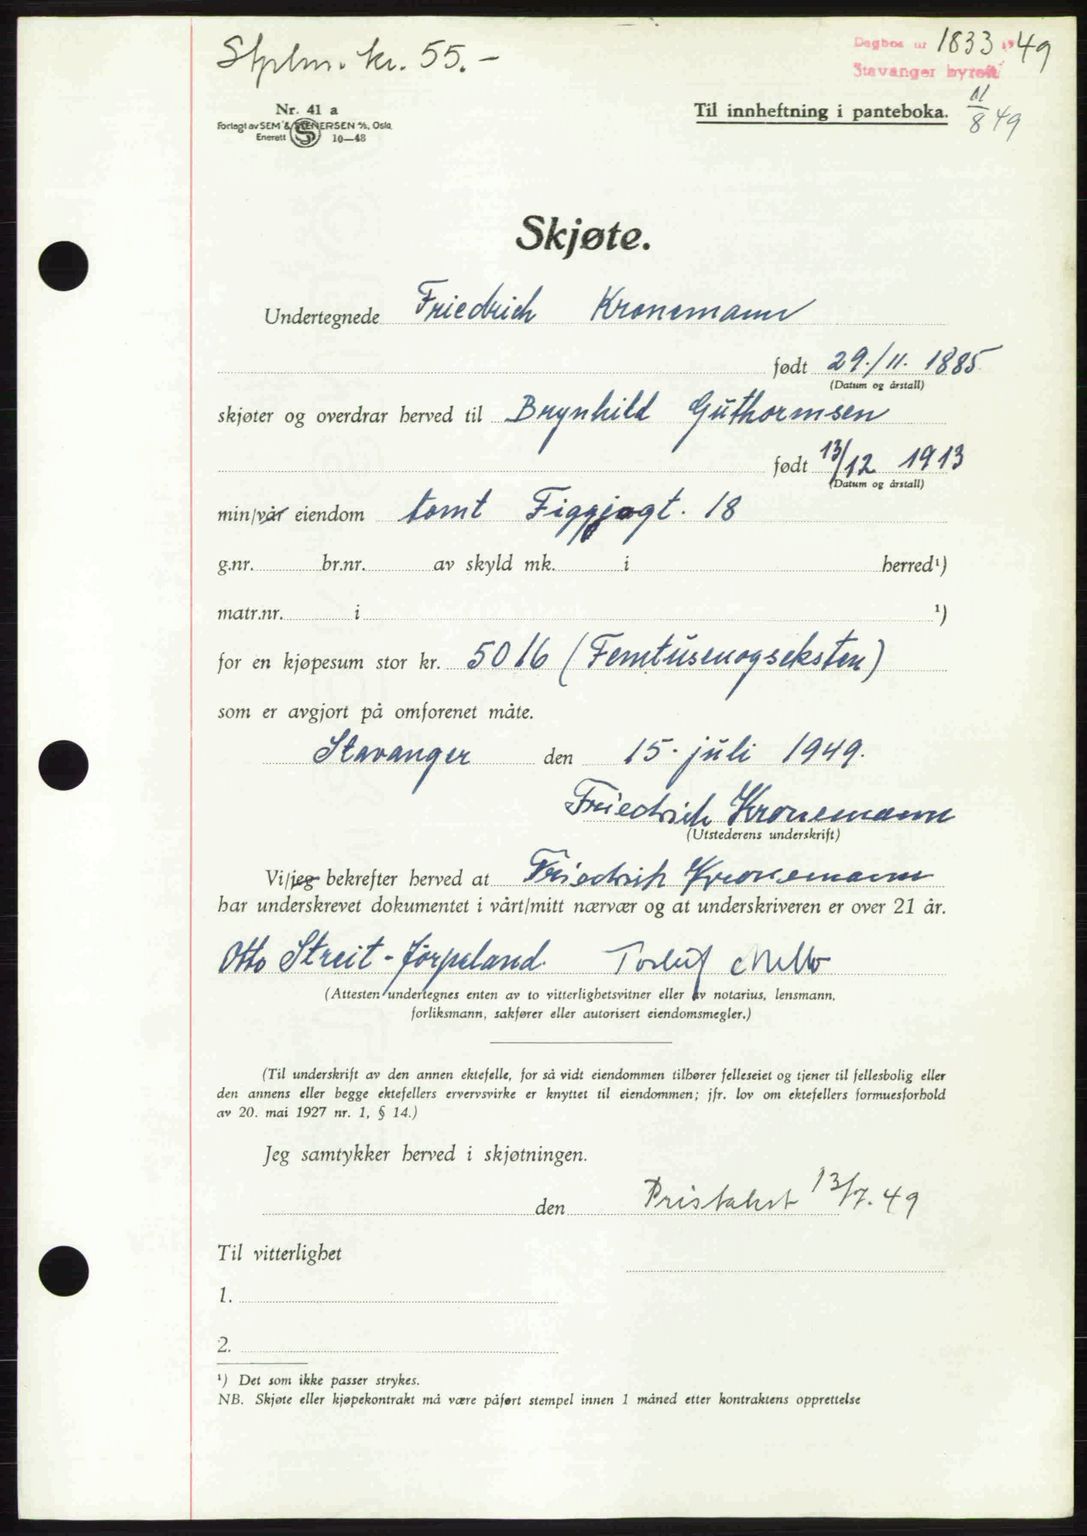 Stplm. kr. 55.-
Dagbok nr 1833 1949
Stavanger byrett
11/8 49
Nr. 41 a
Forlagt av SEM & STENERSEN A/S, Oslo.
Enerett 10—48
Til innheftning i panteboka.
Skjøte.
Undertegnede Friedrich Kronemann
født 29./11. 1885
(Datum og årstall)
skjøter og overdrar herved til Brynhild Guthormsen
født 13/12 1913
(Datum og årstall)
min/vår eiendom tomt Figgjogt. 18
g.nr. br.nr. av skyld mk. i herred¹)
matr.nr. i ¹)
for en kjøpesum stor kr. 5016 (Femtusenogseksten)
som er avgjort på omforenet måte.
Stavanger den 15. juli 1949.
Friedrich Kronemann
(Utstederens underskrift)
Vi/jeg bekrefter herved at Friedrich Kronemann
har underskrevet dokumentet i vårt/mitt nærvær og at underskriveren er over 21 år.
Otto Streit - Jørpeland
(Attesten undertegnes enten av to vitterlighetsvitner eller av notarius, lensmann,
forliksmann, sakfører eller autorisert eiendomsmegler.)
(Til underskrift av den annen ektefelle, for så vidt eiendommen tilhører felleseiet og tjener til fellesbolig eller
den annens eller begge ektefellers ervervsvirke er knyttet til eiendommen; jfr. lov om ektefellers formuesforhold
av 20. mai 1927 nr. 1, § 14.)
Jeg samtykker herved i skjøtningen.
den Pristakst 13/7. 49
Til vitterlighet
1.
2.
¹) Det som ikke passer strykes.
NB. Skjøte eller kjøpekontrakt må være påført stempel innen 1 måned etter kontraktens opprettelse